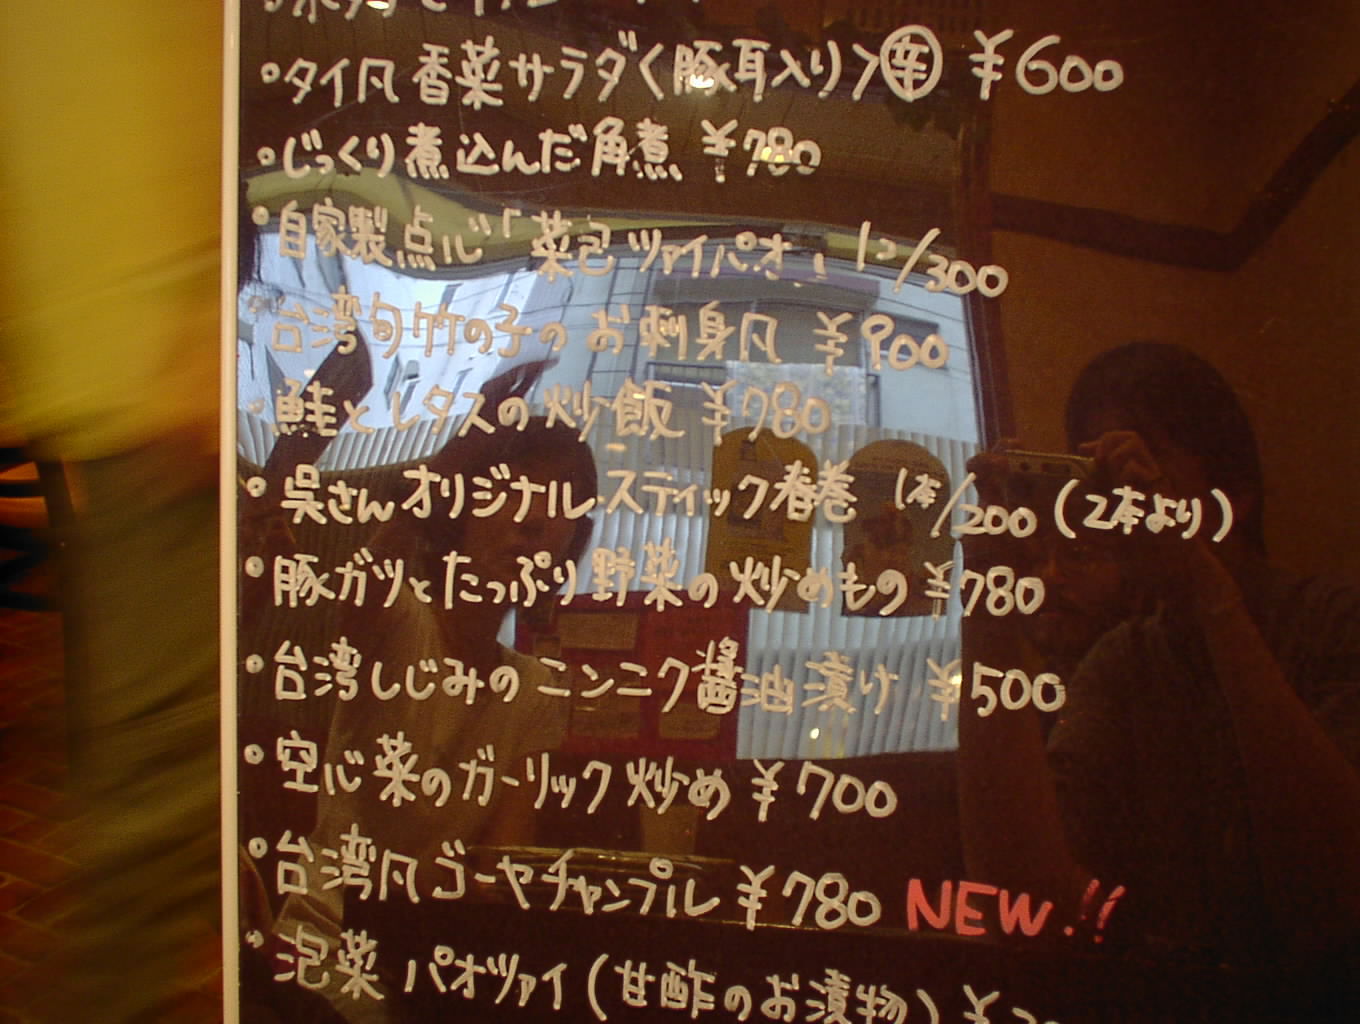 ・タイ風香菜サラダ〈豚耳入り〉辛 ¥600
・じっくり煮込んだ角煮 ¥780
・自家製点心「菜包 ツァイパオ」 1コ/300
・台湾旬竹の子のお刺身風 ¥900
・鮭とレタスの炒飯 ¥780
・呉さんオリジナル・スティック春巻 1本/200(2本より)
・豚ガツとたっぷり野菜の炒めもの ¥780
・台湾しじみのニンニク醤油漬け ¥500
・空心菜のガーリック炒め ¥700
・台湾風ゴーヤチャンプル ¥780 NEW!!
・泡菜 パオツァイ(甘酢のお漬物) ¥